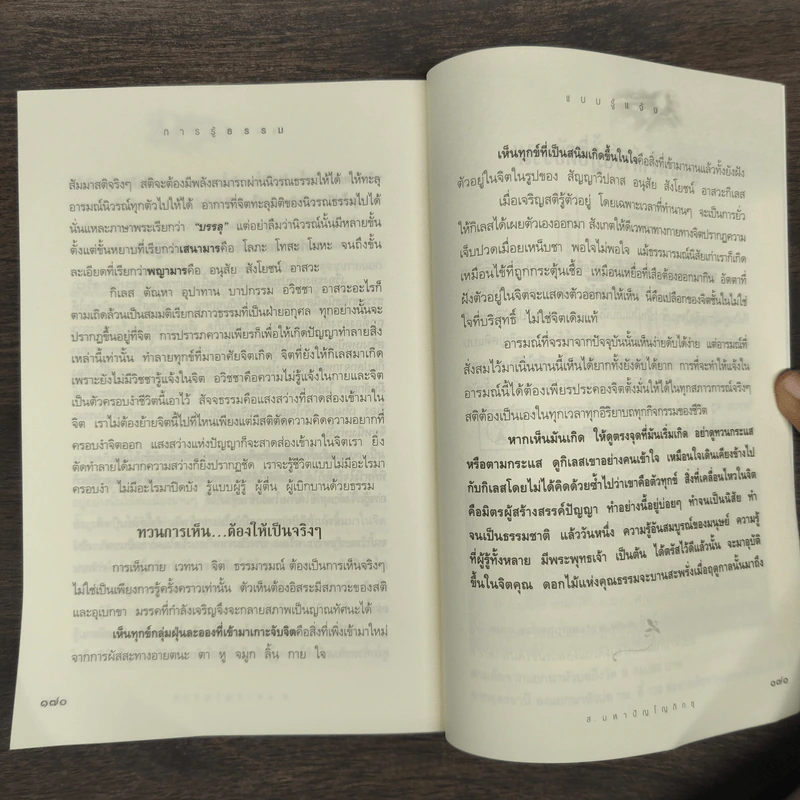 การรู้ธรรม
สัมมาสติจริงๆ สติจะต้องมีพลังสามารถผ่านนิวรณธรรมให้ได้ ให้ทะลุ
อารมณ์นิวรณ์ทุกตัวไปให้ได้ อาการที่จิตทะลุมิติของนิวรณธรรมไปได้
นั่นและภาษาพระเรียกว่า "บรรลุ" แต่อย่าลืมว่านิวรณ์นั้นมีหลายขั้น
ตั้งแต่ขั้นหยาบที่เรียกว่าเสนามารคือ โลภะ โทสะ โมหะ จนถึงขั้น
ละเอียดที่เรียกว่าพญามารคือ อนุสัย สังโยชน์ อาสวะ
กิเลส ตัณหา อุปาทาน บาปกรรม อวิชชา อาสวะอะไรก็
ตามเถิดล้วนเป็นสมมติเรียกสภาวธรรมที่เป็นฝ่ายอกุศล ทุกอย่างนั้นจะ
ปรากฏขึ้นอยู่ที่จิต การปรารภความเพียรก็เพื่อให้เกิดปัญญาทำลายสิ่ง
เหล่านี้เท่านั้น ทำลายทุกข์ที่มาอาศัยจิตเกิด จิตที่ยังให้กิเลสมาเกิด
เพราะยังไม่มีวิชชารู้แจ้งในจิต อวิชชาคือความไม่รู้แจ้งในกายและจิต
เป็นตัวครอบงำชีวิตนี้เอาไว้ สัจจธรรมคือแสงสว่างที่สาดส่องเข้ามาใน
จิต เราไม่ต้องย้ายจิตนี้ไปที่ไหนเพียงแต่มีสติตัดความคิดความอยากที่
ครอบงำจิตออก แสงสว่างแห่งปัญญาก็จะสาดส่องเข้ามาในจิตเรา ยิ่ง
ตัดทำลายได้มากความสว่างก็ยิ่งปรากฏชัด เราจะรู้ชีวิตแบบไม่มีอะไรมา
ครอบงำ ไม่มีอะไรมาปิดบัง รู้แบบผู้รู้ ผู้ตื่น ผู้เบิกบานด้วยธรรม
ทวนการเห็น...ต้องให้เป็นจริงๆ
การเห็นกาย เวทนา จิต ธรรมารมณ์ ต้องเป็นการเห็นจริงๆ
ไม่ใช่เป็นเพียงการรู้ครั้งคราวเท่านั้น ตัวเห็นต้องอิสระมีสภาวะของสติ
และอุเบกขา มรรคที่กำลังเจริญจึงจะกลายสภาพเป็นญาณทัศนะได้
เห็นทุกข์กลุ่มฝุ่นละอองที่เข้ามาเกาะจับจิตคือสิ่งที่เพิ่งเข้ามาใหม่
จากการผัสสะทางอายตนะ ตา หู จมูก ลิ้น กาย ใจ
๑๗๐
แบบรู้แจ้ง
เห็นทุกข์ที่เป็นสนิมเกิดขึ้นในใจคือสิ่งที่เข้ามานานแล้วทั้งยังฝัง
ตัวอยู่ในจิตในรูปของ สัญญาวิปลาส อนุสัย สังโยชน์ อาสวะกิเลส
เมื่อเจริญสติรู้ตัวอยู่ โดยเฉพาะเวลาที่ทำนานๆ จะเป็นการยั่ว
ให้กิเลสได้เผยตัวเองออกมา สังเกตให้ดีเวทนาทางกายทางจิตปรากฏความ
เจ็บปวดเมื่อยเหน็บชา พอใจไม่พอใจ แม้ธรรมารมณ์นิสัยเก่าเราก็เกิด
เหมือนไข้ที่ถูกกระตุ้นเชื้อ เหมือนเหยื่อที่เสือต้องออกมากิน อัตตาที่
ฝังตัวอยู่ในจิตจะแสดงตัวออกมาให้เห็น นี่คือเปลือกของจิตชั้นในไม่ใช่
ใจที่บริสุทธิ์ ไม่ใช่จิตเดิมแท้
อารมณ์ที่จรมาจากปัจจุบันนั้นเห็นง่ายดับได้ง่าย แต่อารมณ์ที่
สั่งสมไว้มาเนิ่นนานนี้เห็นได้ยากทั้งยังดับได้ยาก การที่จะทำให้แจ้งใน
อารมณ์นี้ได้ต้องเพียรประคองจิตตั้งมั่นให้ได้ในทุกสภาวการณ์จริงๆ
สติต้องเป็นเองในทุกเวลาทุกอิริยาบถทุกกิจกรรมของชีวิต
หากเห็นมันเกิด ให้ดูตรงจุดที่มันเริ่มเกิด อย่าดูทวนกระแส
หรือตามกระแส ดูกิเลสเขาอย่างคนเข้าใจ เหมือนใจเดินเคียงข้างไป
กับกิเลสโดยไม่ได้คิดด้วยซ้ำไปว่าเขาคือตัวทุกข์ สิ่งที่เคลื่อนไหวในจิต
คือมิตรผู้สร้างสรรค์ปัญญา ทำอย่างนี้อยู่บ่อยๆ ทำจนเป็นนิสัย ทำ
จนเป็นธรรมชาติ แล้ววันหนึ่ง ความรู้อันสมบูรณ์ของมนุษย์ ความรู้
ที่ผู้รู้ทั้งหลาย มีพระพุทธเจ้า เป็นต้น ได้ตรัสไว้ดีแล้วนั้น จะมาอุบัติ
ขึ้นในจิตคุณ ดอกไม้แห่งคุณธรรมจะบานสะพรั่งเมื่อฤดูกาลนั้นมาถึง
๑๗๑